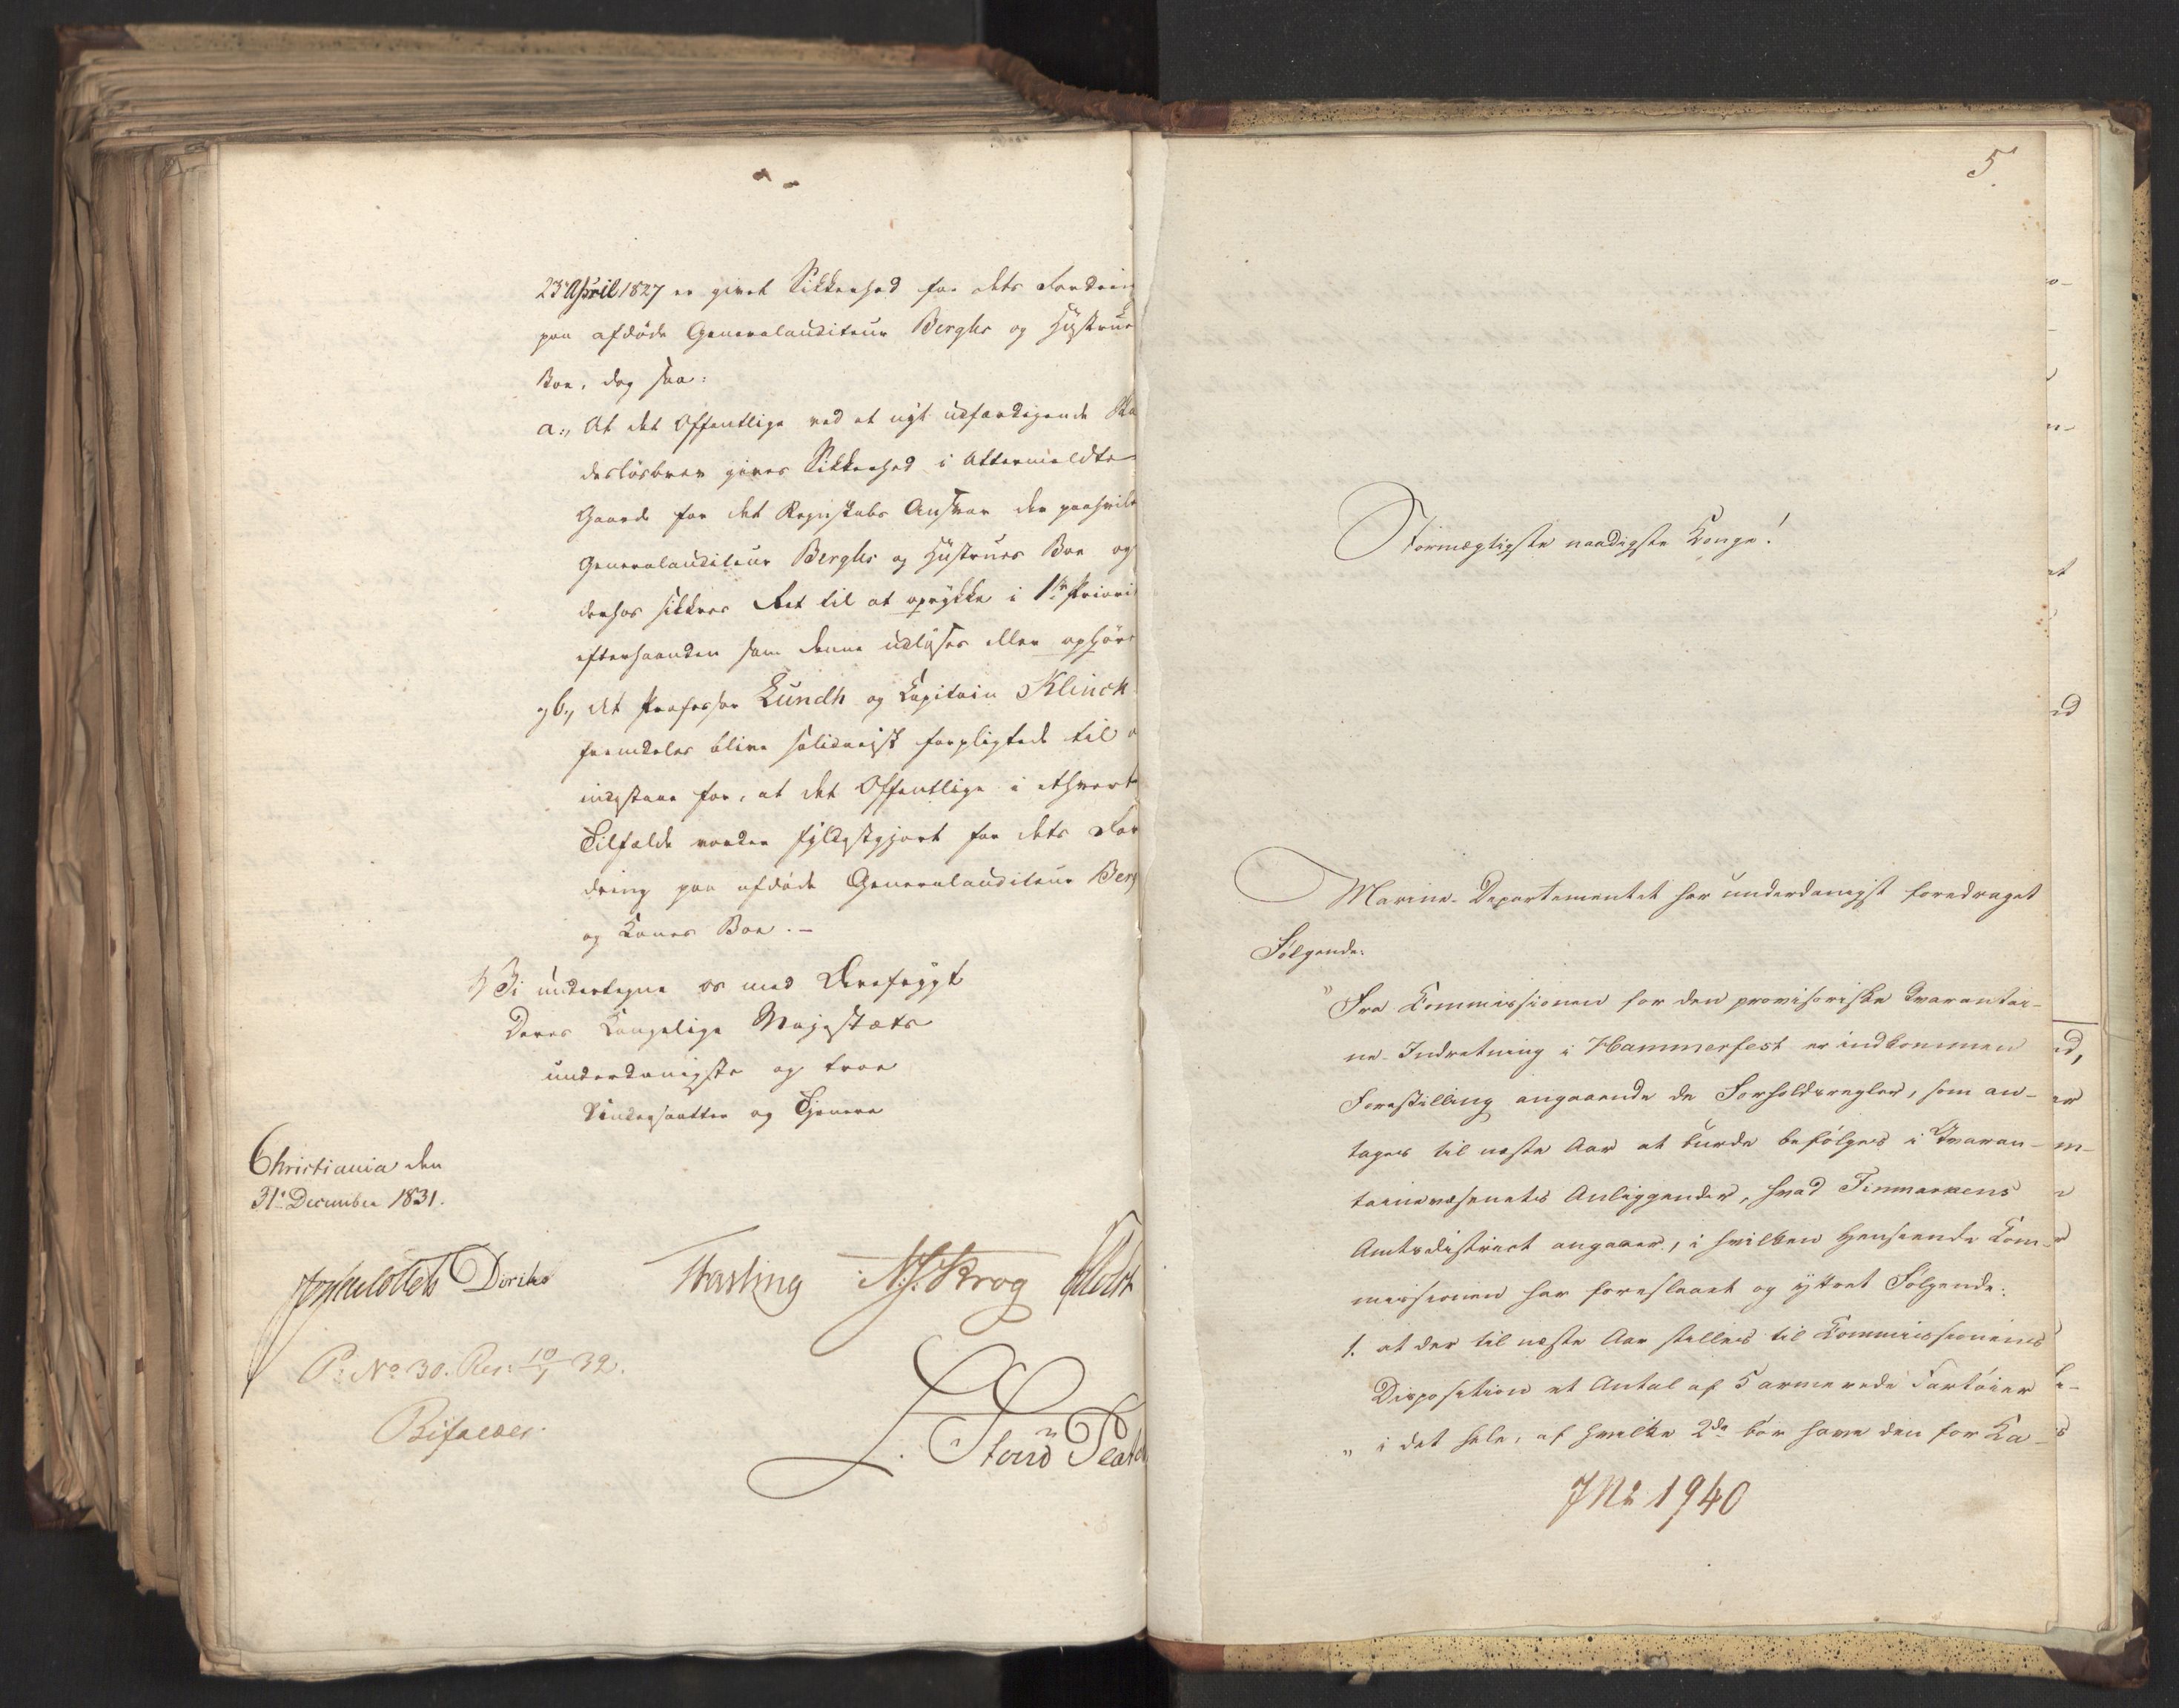 23 April 1827 er givet Sikkerhed for dets Fordrin
paa afdøde Generalauditeur Berghs og Hustrues
Boe, dog saa:
a., At det Offentlige ved et nyt udfærdigende Ska
desløsbrev gives Sikkerhed i Attermeldte
Gaard for det Regnskabs Ansvar der paahvile
Generalauditeur Berghs og Hustrues Boe og
derhos sikkres Ret til at oprykke i 1ste Priori
efterhaanden som denne udlyses eller ophører
og b., At Professor Lundh og Capitain Klinck
fremdeles blive solidarisk forpligtede til a
indestaae for, at det Offentlige i ethvert
Tilfælde vorder fyldestgjort for dets For
dring paa afdøde Generalauditeur Berg
og Kones Boe. –
Vi undertegne os med Ærefrygt
Deres Kongelige Majestæts
underdanigste og troe
Undersaatter og Tjenere
Christiania den
31te December 1831.
Diriks N. J. Krog
P: No 30. Res: 10/1 32.
Bifaldes.
5.
Stormægtigste naadigste Konge!
Marine-Departementet har underdanigst foredraget
Følgende:
"Fra Commissionen for den provisoriske Qvarantai-
ne-Indretning i Hammerfest er indkommen
Forestilling angaaende de Forholdsregler, som an-
tages til næste Aar at burde befølges i Qvaran-
tainevæsenets Anliggender, hvad Finmarkens
Amtsdistrict angaaer, i hvilken Henseende Com-
missionen har foreslaaet og yttret Følgende:
1. at der til næste Aar stilles til Commissionens
Disposition et Antal af 5 armerede Fartøier
" i det hele, af hvilke 2de bør have den for Ka-
J No 1940